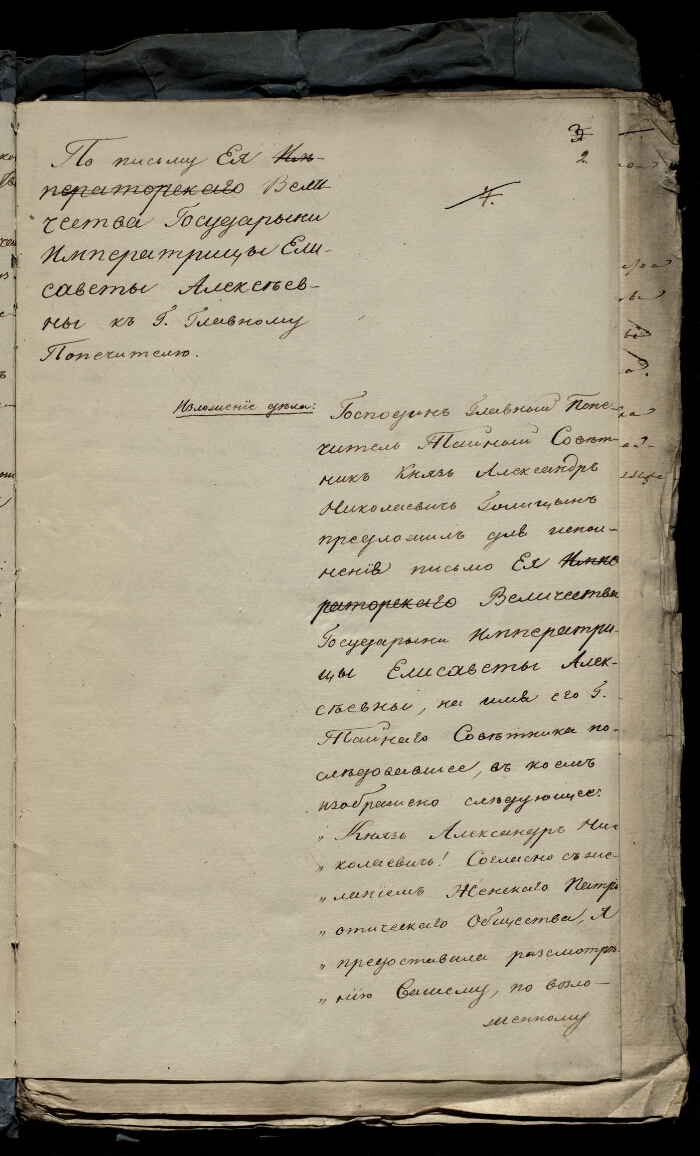 3
2
4.
По письму Ея Им-
ператорскаго Вели-
чества Государыни
Императрицы Ели-
саветы Алексѣев-
ны къ Г. Главному
Попечителю.
Изложеніе дѣла:
Господинъ Главный Попе-
читель Тайный Совѣт-
никъ Князь Александръ
Николаевичъ Голицынъ
предложилъ для испол-
ненія письмо Ея Импе-
раторскаго Величества
Государыни Императри-
цы Елисаветы Алек-
сѣевны, на имя его Г.
Тайнаго Совѣтника по-
слѣдовавшее, въ коемъ
изображено слѣдующее:
„ Князь Александръ Ни-
„ колаевичь! Согласно съ же-
„ ланіемъ Женскаго Патрі-
„ отическаго Общества, Я
„ предоставила разсмотрѣ-
„ нію Вашему, по возло-
женному